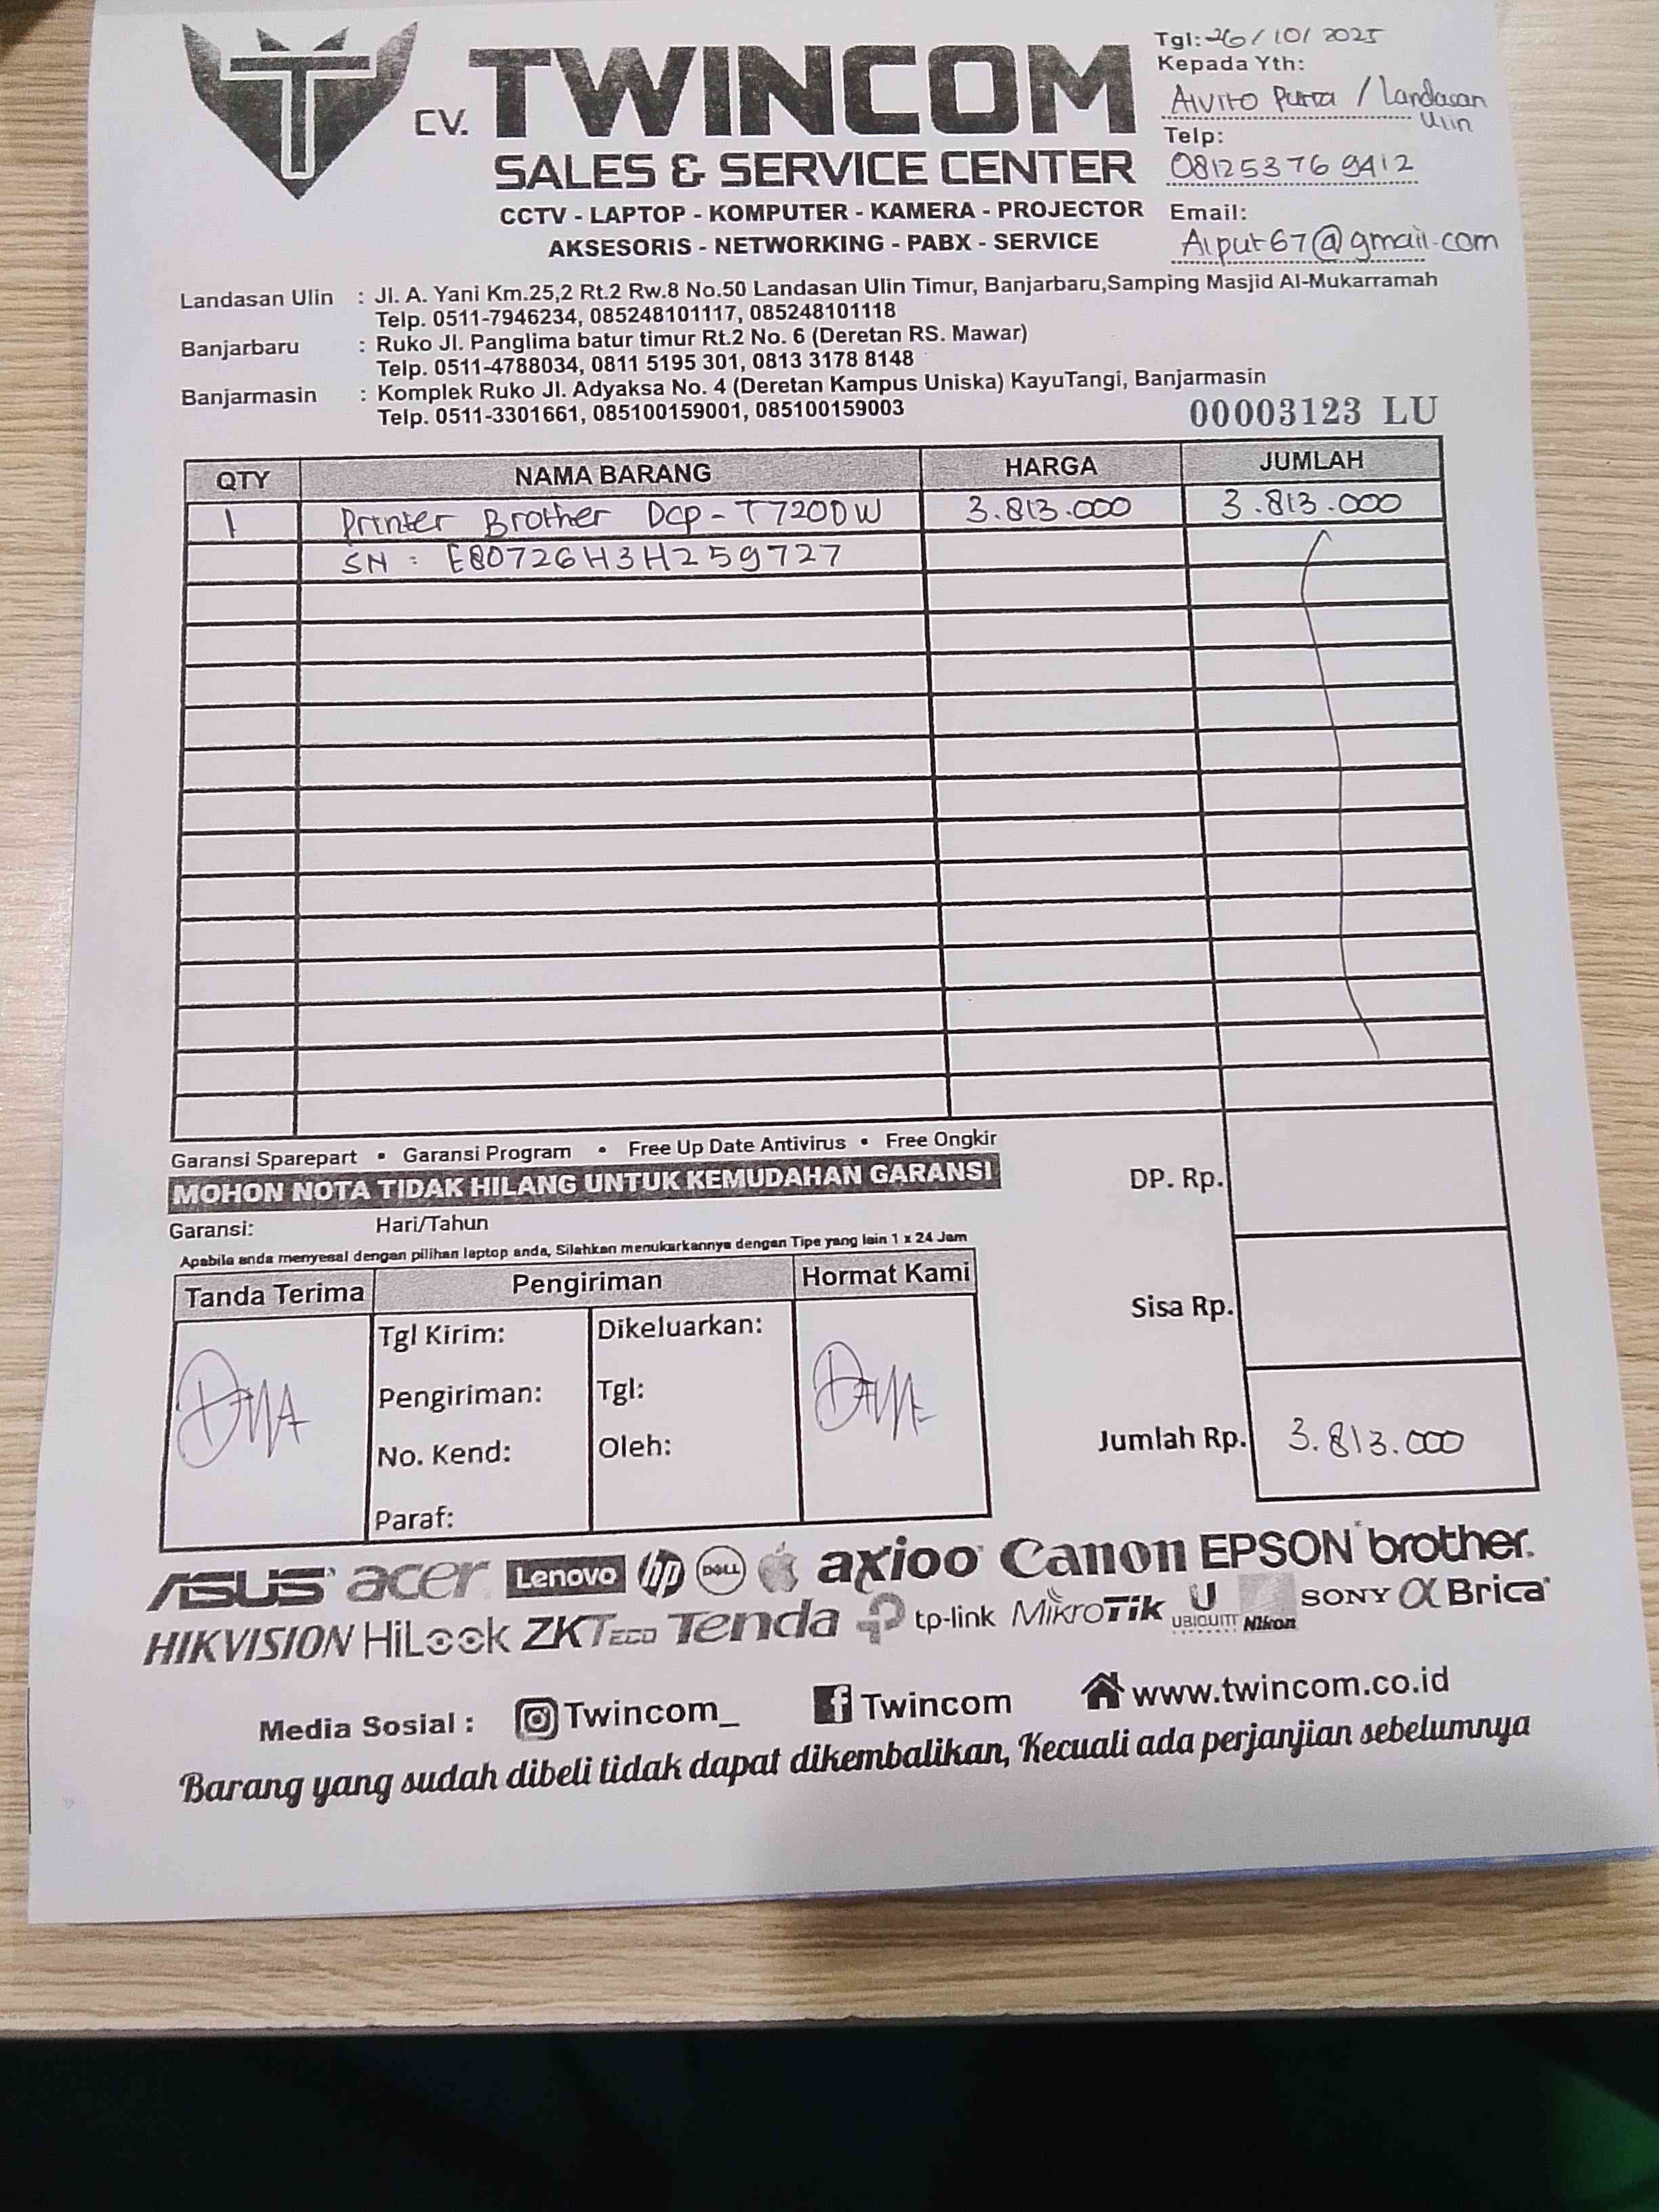 Tgl: 26/10/2025
Kepada Yth:
Alvito Putra / Landasan Ulin
Telp:
081253769412
Email:
Alput67@gmail.com
CV. TWINCOM
SALES & SERVICE CENTER
CCTV - LAPTOP - KOMPUTER - KAMERA - PROJECTOR
AKSESORIS - NETWORKING - PABX - SERVICE
Landasan Ulin : Jl. A. Yani Km.25,2 Rt.2 Rw.8 No.50 Landasan Ulin Timur, Banjarbaru,Samping Masjid Al-Mukarramah
Telp. 0511-7946234, 085248101117, 085248101118
Banjarbaru : Ruko Jl. Panglima batur timur Rt.2 No. 6 (Deretan RS. Mawar)
Telp. 0511-4788034, 0811 5195 301, 0813 3178 8148
Banjarmasin : Komplek Ruko Jl. Adyaksa No. 4 (Deretan Kampus Uniska) KayuTangi, Banjarmasin
Telp. 0511-3301661, 085100159001, 085100159003
00003123 LU
QTY NAMA BARANG HARGA JUMLAH
1 Printer Brother Dcp-T720DW 3.813.000 3.813.000
SN : E80726H3H259727
Garansi Sparepart • Garansi Program • Free Up Date Antivirus • Free Ongkir
MOHON NOTA TIDAK HILANG UNTUK KEMUDAHAN GARANSI
Garansi: Hari/Tahun
Apabila anda menyesal dengan pilihan laptop anda, Silahkan menukarkannya dengan Tipe yang lain 1 x 24 Jam
DP. Rp.
Sisa Rp.
Jumlah Rp. 3.813.000
Tanda Terima Pengiriman Hormat Kami
Tgl Kirim: Dikeluarkan:
Pengiriman: Tgl:
No. Kend: Oleh:
Paraf:
ASUS acer Lenovo hp DELL axioo Canon EPSON brother
HIKVISION HiLook ZKTECO Tenda tp-link MikroTik U UBIQUITI Nikon SONY α Brica
Media Sosial : Twincom_ Twincom www.twincom.co.id
Barang yang sudah dibeli tidak dapat dikembalikan, Kecuali ada perjanjian sebelumnya